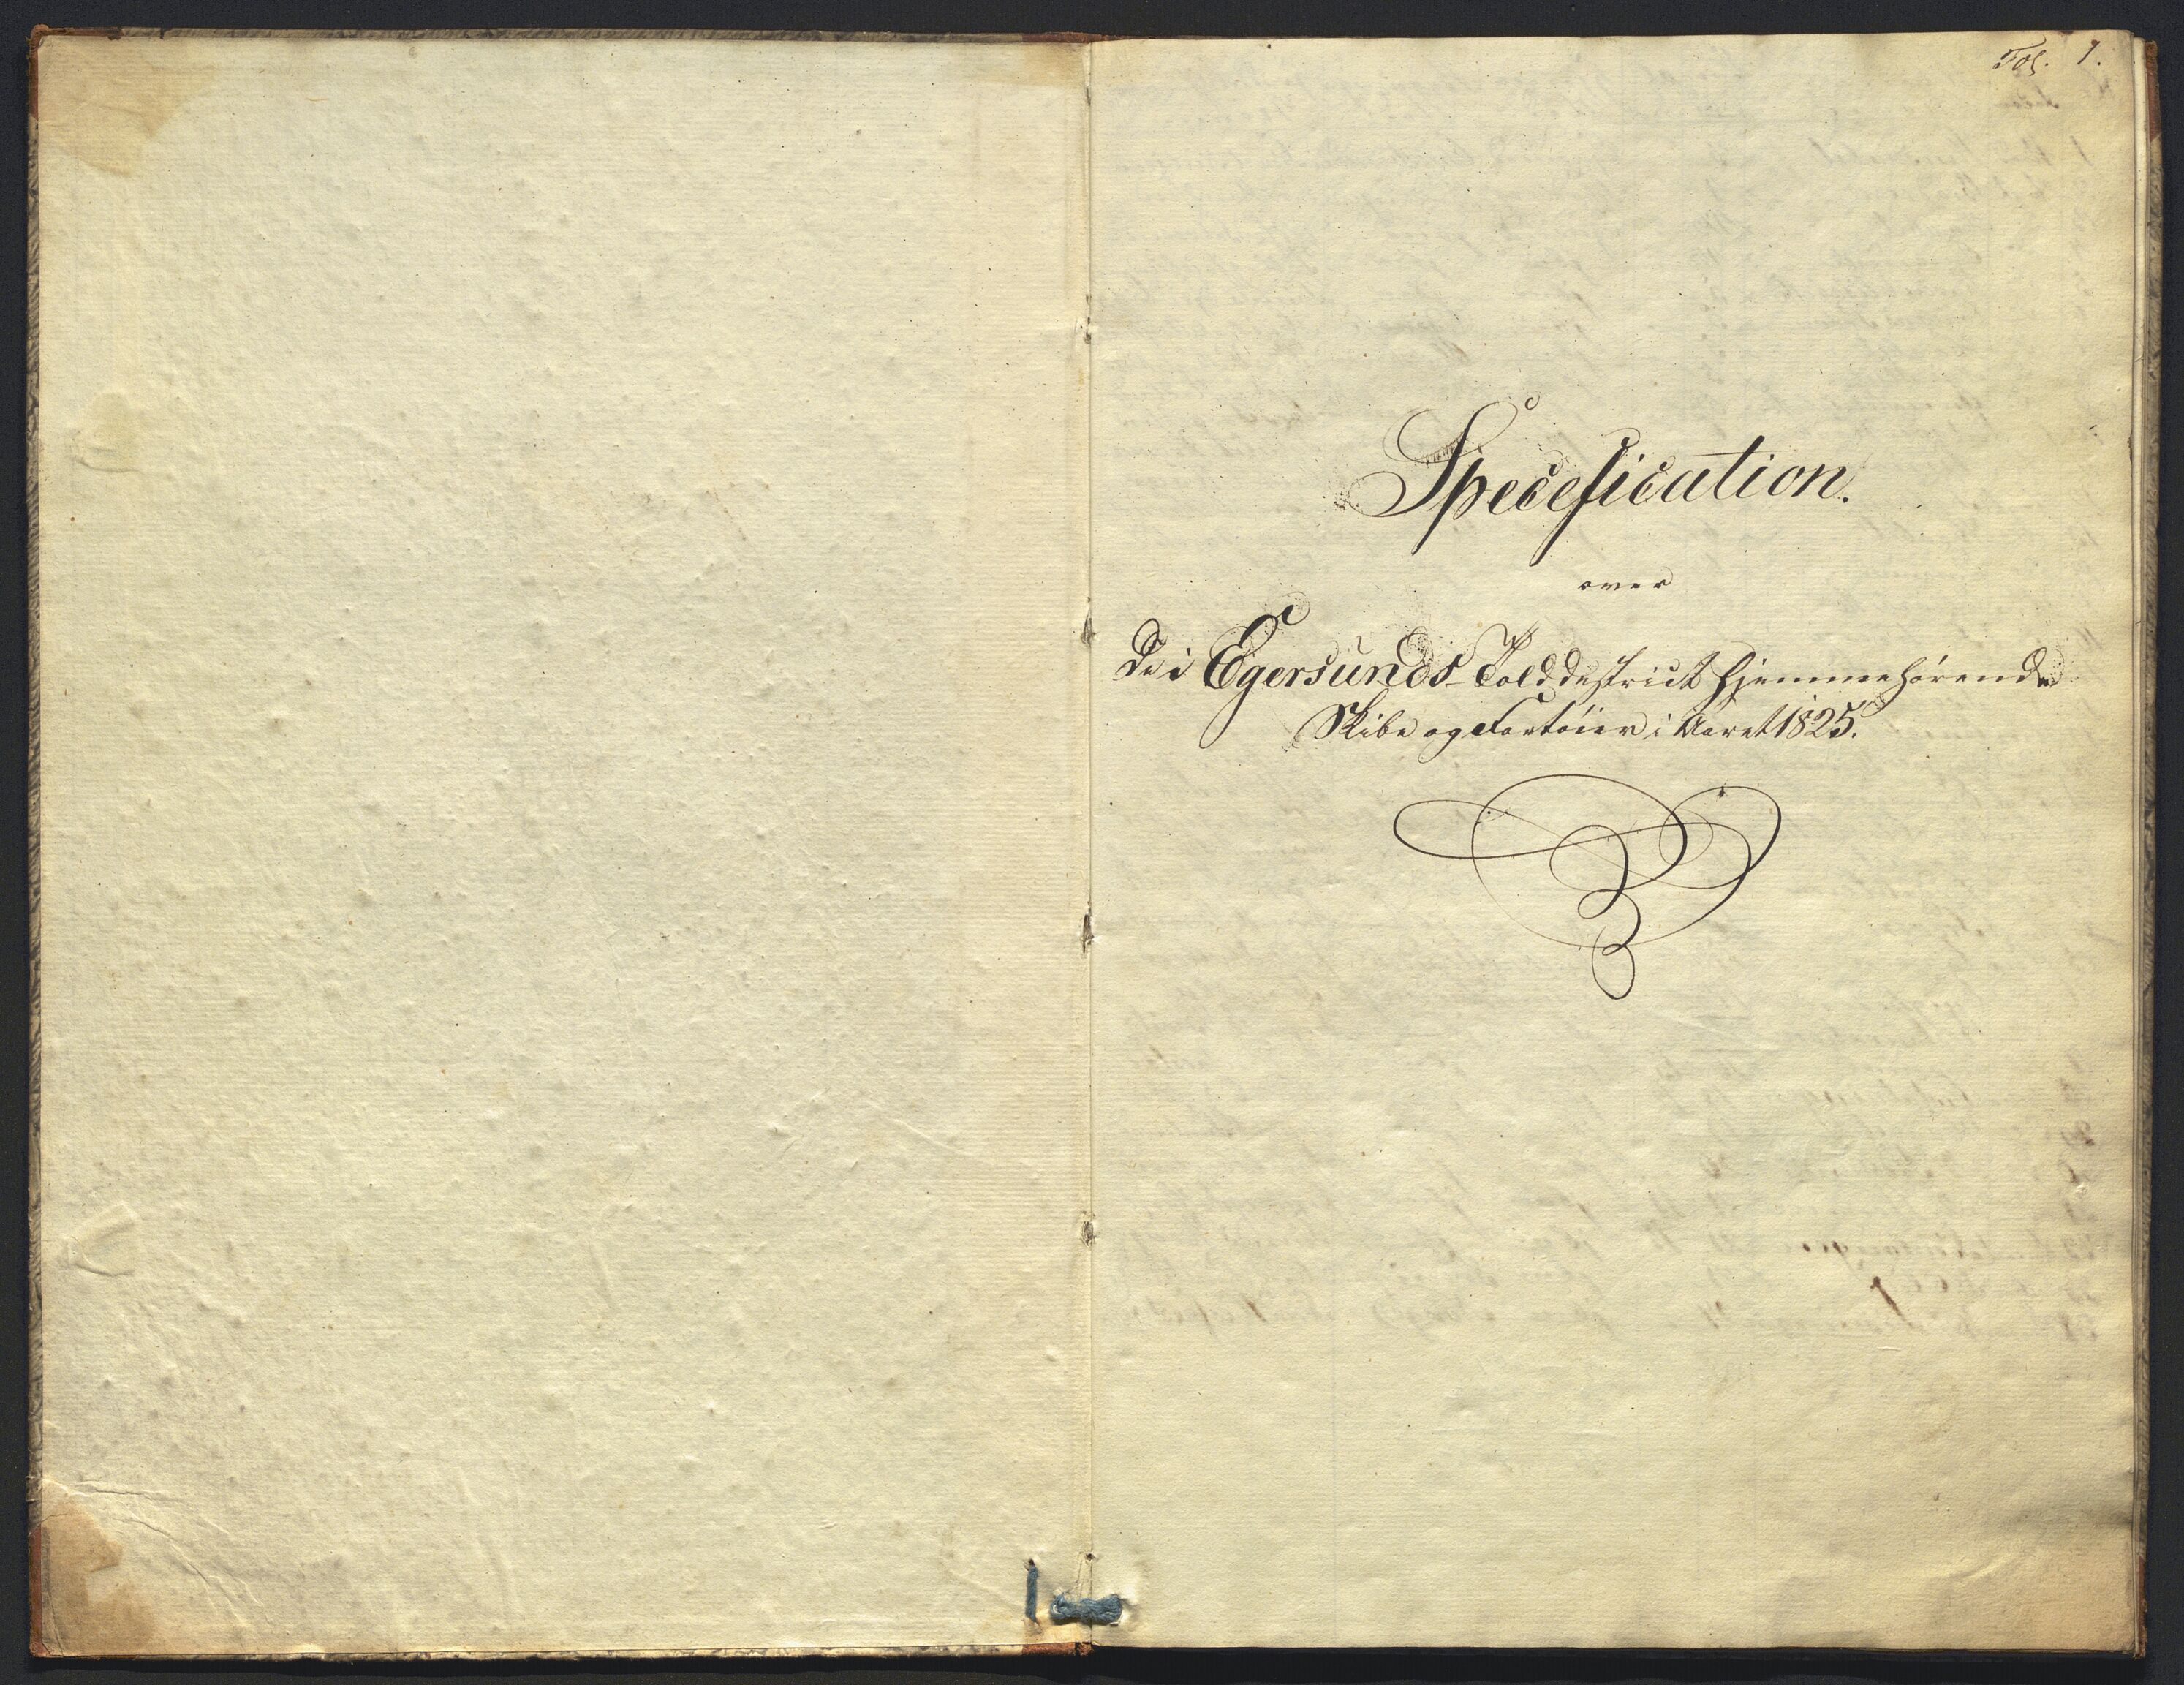 Fol. 1.
Specefication.
over
De i Egersunds Tolddestrict hjemmehørende
Skibe og Fartöier i Aaret 1825.